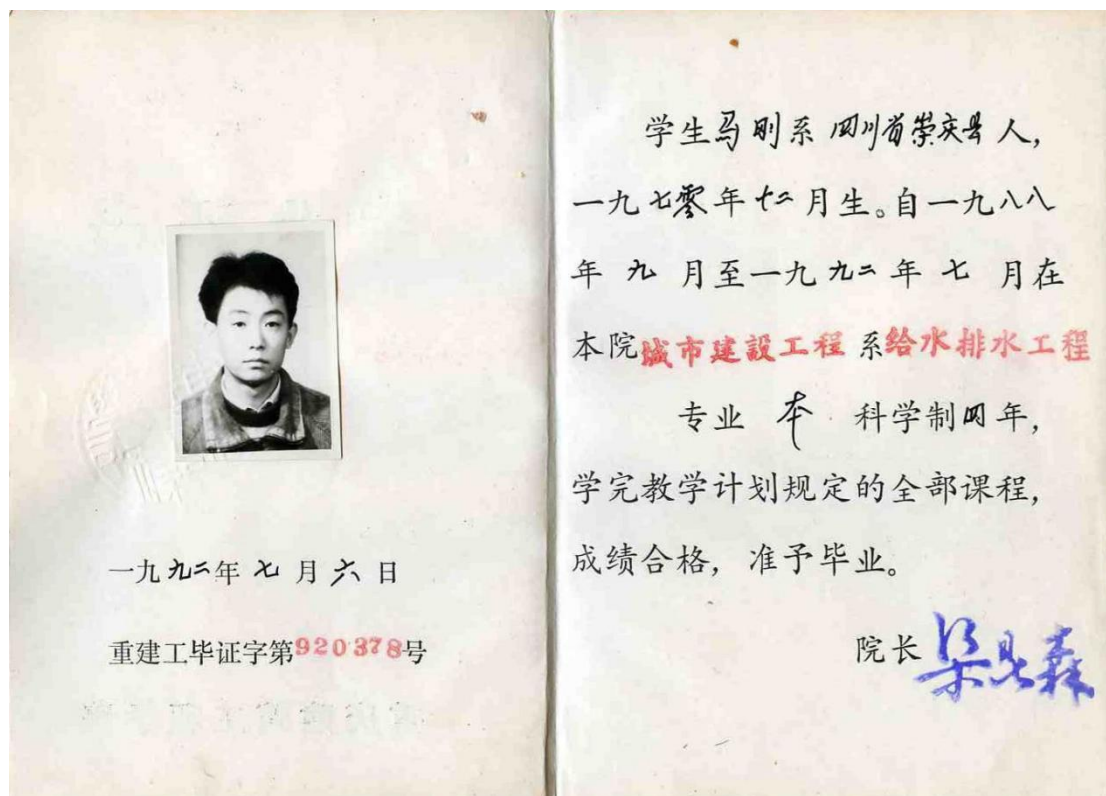 一九九二年七月六日
重建工毕证字第920378号
学生马刚系四川省崇庆县人,
一九七零年十二月生。自一九八八
年九月至一九九二年七月在
本院城市建設工程系给水排水工程
专业 本 科学制四年,
学完教学计划规定的全部课程,
成绩合格, 准予毕业。
院长